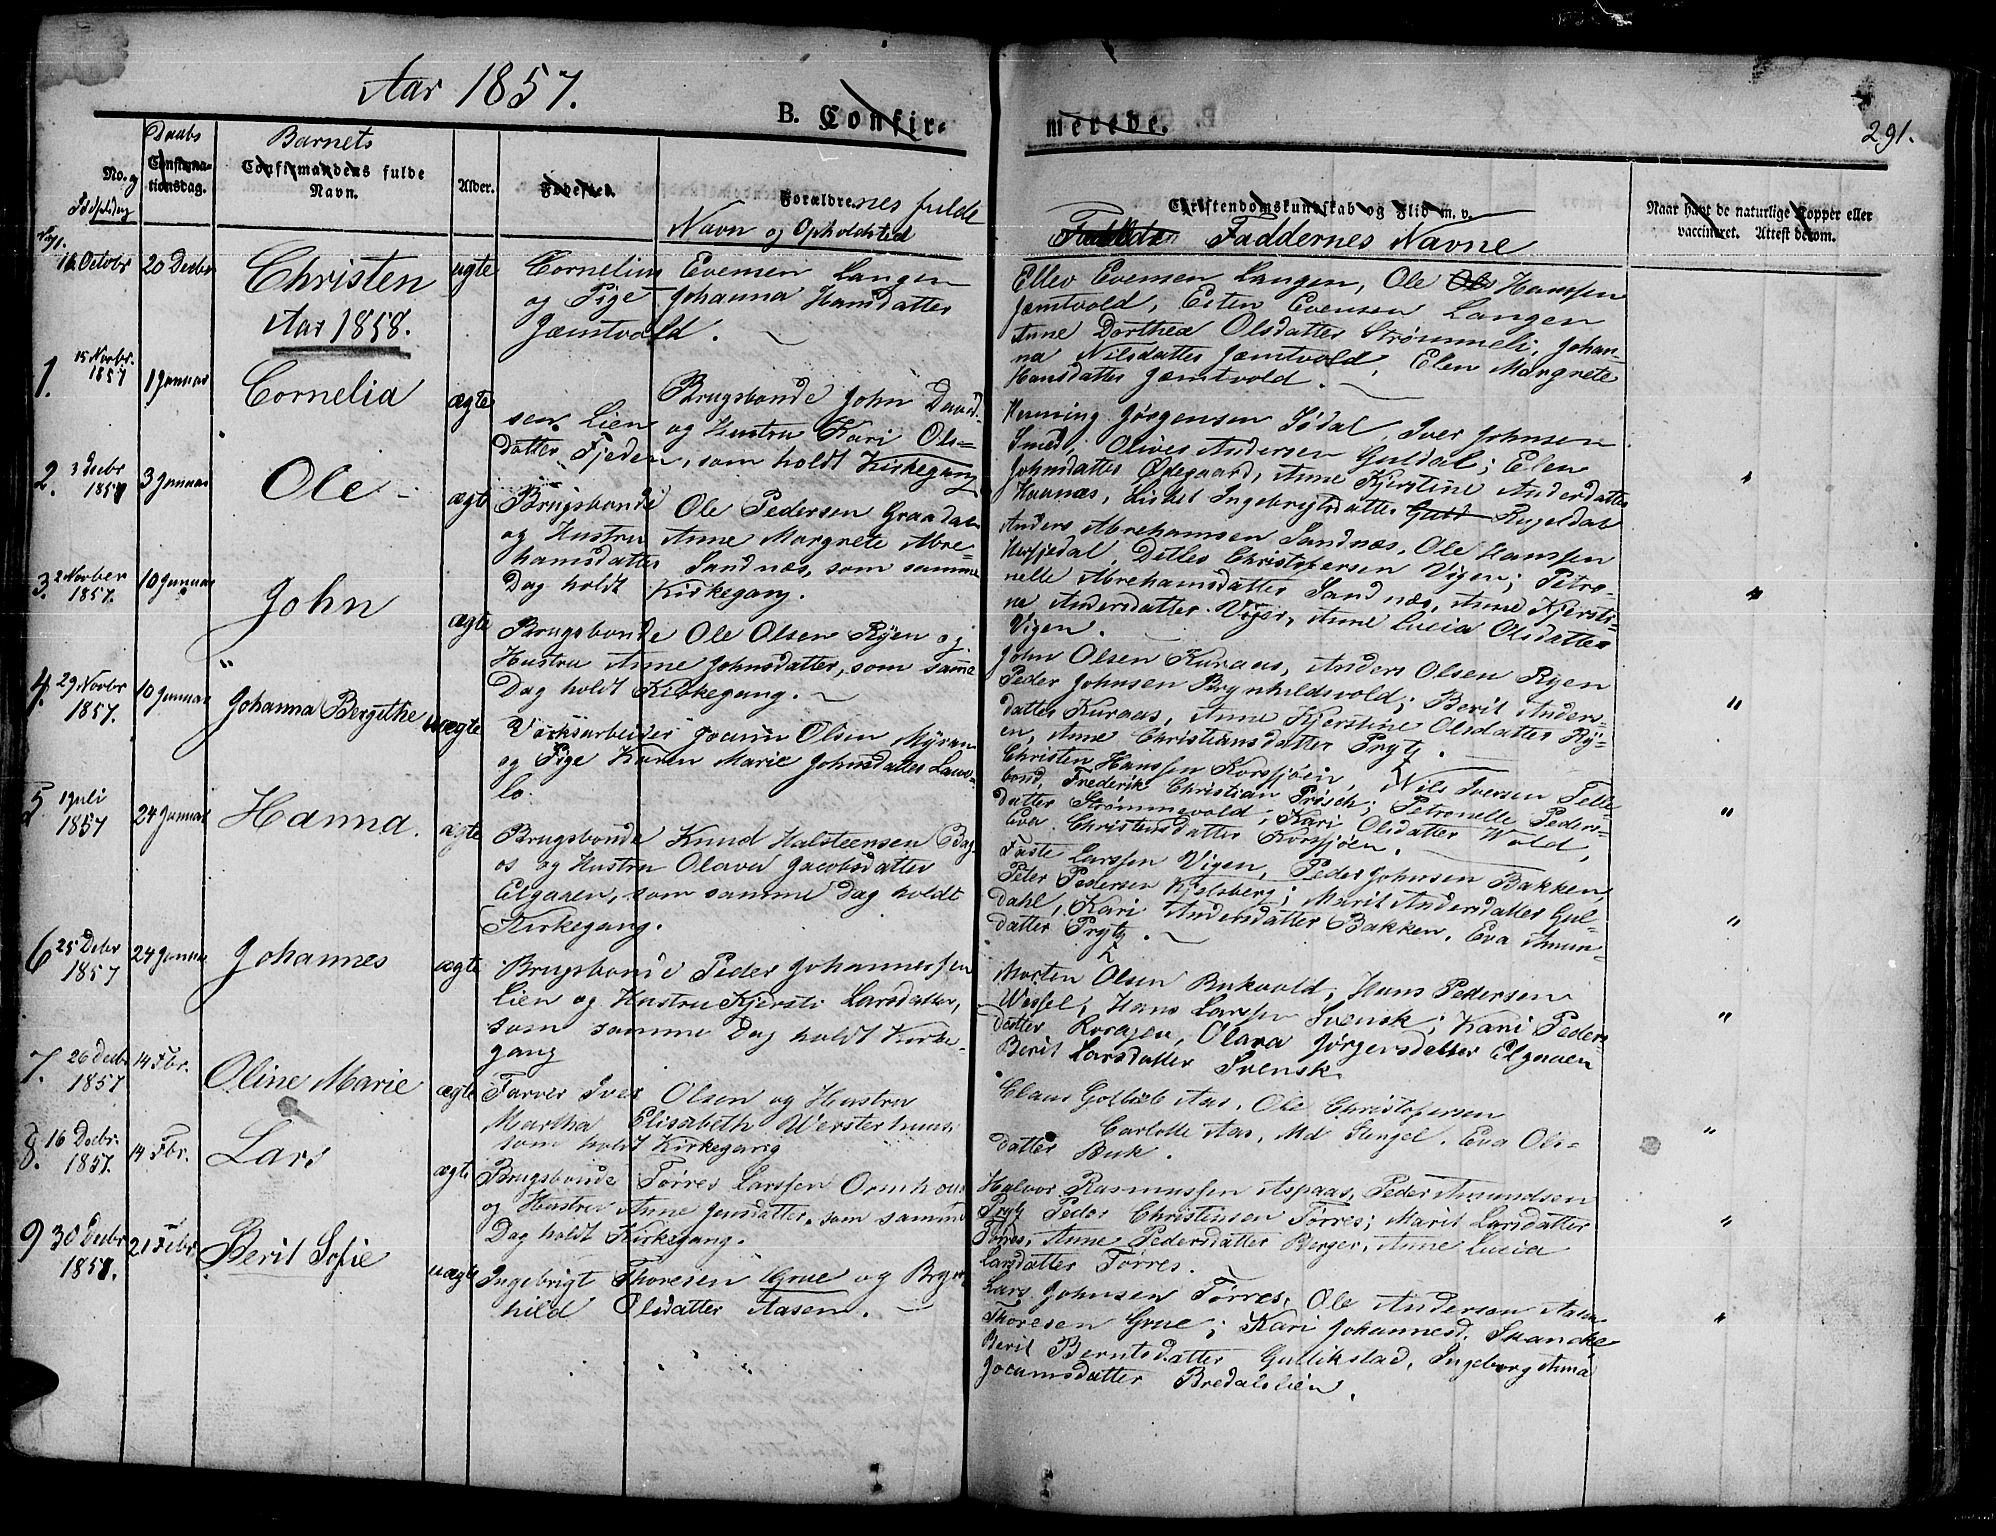 Aar 1857.
B. Confir-
merede.
291.
Daabs
Barnets
No. og
Fødselsdag
Confirma-
tionsdag.
Confirmandens fulde
Navn.
Alder.
Fødested.
Forældrenes fulde
Navn og Opholdsted
Christendomskundskab og Flid m. v.
Faddernes Navne
Naar havt de naturlige Kopper eller
vaccineret. Attest derom.
16 Octobr
20 Decbr
Christen
uægte
Cornelius Evensen Langen
og Pige Johanna Hansdatter
Jæmtvold.
Ellev Evensen Langen, Ole Ole Hanssen
Jæmtvold, Esten Evensen Langen
Anne Dorthea Olsdatter Strømmeli, Johan-
na Nilsdatter Jæmtvold, Elen Margrete
Hansdatter Jæmtvold.
Aar 1858.
1.
15 Novbr.
1857
1 Januar
Cornelia
ægte
Brugsbonde John David-
sen Lien og Hustru Kari Ols-
datter Fjeden, som holdt Kirkegang
Henning Jørgensen Sødal, Iver Johnsen
Smed, Oliver Andersen Guldal; Elen
Johnsdatter Ødegaard, Anne Kjerstine Andersdatter
Havnæs, Lisbet Ingebrigtsdatter Guld Rugeldal
2.
3 Decbr
1857
3 Januar
Ole
ægte
Brugsbonde Ole Pedersen Graadal
og Hustru Anne Margrete Abre-
hamsdatter Sandnæs, som samme
Dag holdt Kirkegang.
Anders Abrehamsen Sandnæs, Ole Hanssen
Hersjedal, Ditlef Christofersen Vigen; Petro-
nelle Abrehamsdatter Sandnæs, Anne Kjersti-
ne Andersdatter Vigen, Anne Lucia Olsdatter
Vigen.
3.
2 Novber
1857.
10 Januar
John
ægte
Brugsbonde Ole Olsen Ryen og
Hustru Anne Johnsdatter, som samme
Dag holdt Kirkegang.
John Olsen Kuraas, Anders Olsen Ryen
Peder Johnsen Brynhildsvold; Berit Anders-
datter Kuraas, Anne Kjerstine Olsdatter Ry-
en, Anne Christiansdatter Prytz.
4.
29 Novbr
1857.
10 Januar
Johanna Bergithe
uægte
Værksarbeider Jocum Olsen Myran
og Pige Karen Marie Johnsdatter
Christen Hanssen Korssjøen, Nils Iversen Telle-
bond, Frederik Christian Prøsch; Petronelle Peders-
datter Strømmevold, Kari Olsdatter Vold,
Eva Christensdatter Korssjøen.
5
1 Juli
1857
24 Januar
Hanna.
ægte
Brugsbonde Knud Halsteensen Bag-
os og Hustru Olava Jacobsdatter
Elgaaen, som samme Dag holdt
Kirkegang.
Faste Larssen Vigen, Peder Johnsen Bakken,
Peter Pedersen Kjelsberg; Marit Andersdatter Gul-
dahl, Kari Andersdatter Bakken, Eva Amun-
datter Prytz.
6
25 Decbr
1857
24 Januar
Johannes
ægte
Brugsbonde Peder Johannessen
Lien og Hustru Kjersti Larsdatter,
som samme Dag holdt Kirke-
gang
Morten Olsen Bukvold, Hans Pedersen
Wessel, Hans Larssen Svensk; Kari Peders-
datter Korsjøen, Olava Jørgensdatter Elgaaen
Berit Larsdatter Svensk.
7.
26 Decbr
1857
14 Fbr.
Oline Marie
ægte
Farver Iver Olsen og Hustru
Martha Elisabeth Westerhuus
som holdt Kirkegang
Claus Gotlieb Aas, Ole Christofersen
Carlotte Aas, Md Stengel, Eva Ols-
datter Buk.
8.
16 Decbr.
1857.
14 Fbr.
Lars
ægte
Brugsbonde Tørres Larssen Ormhoug
og Hustru Anne Jensdatter, som samme
Dag holdt Kirkegang.
Halvor Rasmussen Aspaas, Peder Amundsen
Prytz Peder Christensen Tørres; Marit Larsdatter
Tørres, Anne Pedersdatter Berger, Anne Lucia
Larsdatter Tørres.
9
30 Decbr
1857.
21 Febr
Berit Sofie
uægte
Ingebrigt Thoresen Grue og Bryn-
hild Olsdatter Aasen.
Lars Johnsen Tørres, Ole Andersen Aasen
Thoresen Grue; Kari Johannesd. Skancke
Berit Berntsdatter Gullikstad, Ingeborg Anna
Jocumsdatter Bredalslien.